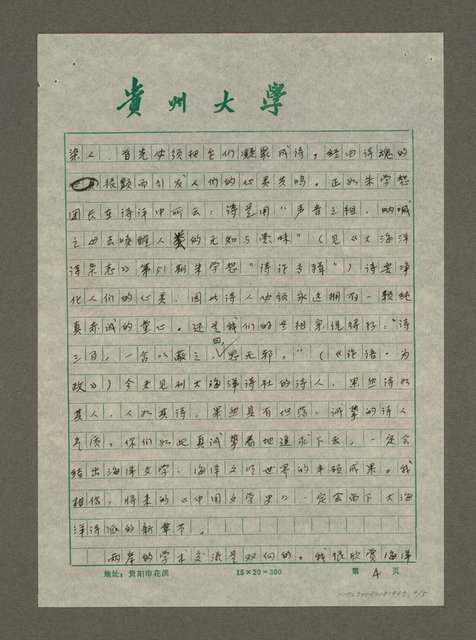 貴州大學
染人,首先必须把它们凝聚成诗,经由诗魂的
振颤而引发人们的心灵共鸣。正如朱学恕
团长在诗评中所云:诗是用"声音之相、呐喊
之母去唤醒人类的无知与愚昧"(见《大海洋
诗杂志》第51期朱学恕"诗论专辑")诗要净
化人们的心灵,因此诗人必须永远拥有一颗纯
真赤诚的童心。还是我们的先祖宗说得好:"诗
三百,一言以蔽之,曰思无邪。"(《论语·为
政》)今天见到大海洋诗社的诗人,果然诗如
其人,人如其诗,果然具有坦荡、诚挚的诗人
气质。你们如此真诚挚着地追求下去,一定会
结出海洋文学、海洋文明世界的丰硕成果。我
相信,将来的《中国文学史》一定会留下大海
洋诗派的新章节。
两岸的学术交流是双向的。我很欣赏海洋
地址:贵阳市花溪
15×20=300
第 4 页